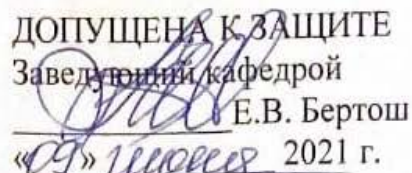 ДОПУЩЕНА К ЗАЩИТЕ
Заведующий кафедрой
Е.В. Бертош
«09» июня 2021 г.